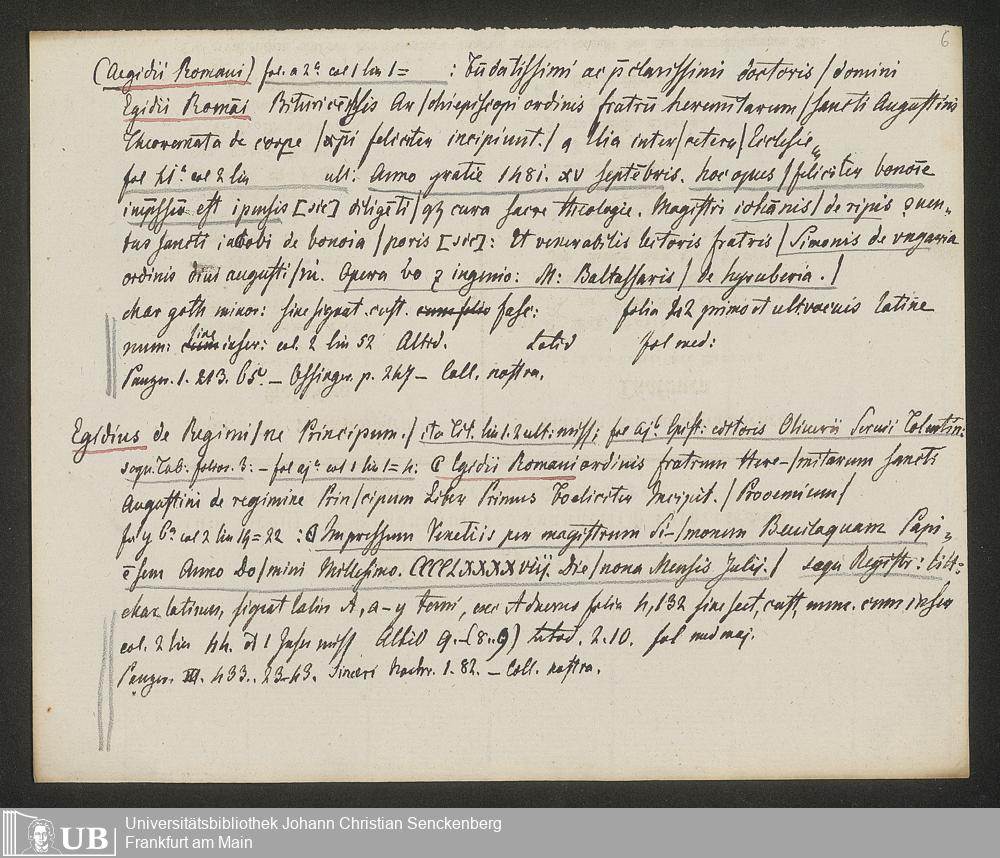 6
(Aegidii Romani) fol. a 2ª col 1 lin 1 = : Eudatissimi ac p̄clarissimi doctoris / domini
Egidii Romāi Bituricēsis Ar / chiepiscopi ordinis fratrū heremitarum / sancti Augustini
Theoremata de corpe / xp̄i feliciter incipiunt. / q Alia inter / cetera / Ecclesie
fol 41ª col 2 lin ult: Anno gratie 1481. XV Septēbris. hoc opus / feliciter bonoīe
impssū est ipensis [sic] diligēti / qz cura sacre theologie. Magistri iohānis / de ripis ꝯuen„
tus sancti iacobi de bonoia / poris [sic]: Et venerabilis lectoris fratris / Simonis de ungaria
ordinis diui augusti / ni. Opera vo z ingenio: M: Baltassaris / de hyruberia . /
char goth minor: sine signat cust. fasc: folia 42 primo et ult vacuis latine
num: sine inser: col. 2 lin 52 Altid. Latid fol med:
Panzer. 1. 213. 65. – Ossinger. p. 247 – Coll. nostra.
Egidius de Regimi / ne Principum. / ita Tit. lin 1. 2 ult: miss; fol aj. Epist: editoris Oliverii Servii Tolentin:
sequ. Tab: folior. 3: – fol aj col 1 lin 1 = 4: C Egidii Romani ordinis fratrum Here– / mitarum sancti
Augustini de regimine Prin / cipum Liber Primus Foeliciter Incipit. / Prooemium /
fol y 6ª col 2 lin 19 = 22 : C Impressum Venetiis per magistrum Si– / monem Beuilaquam Papi„
ēsem Anno Do / mini Millesimo. CCCCLXXXXviij. Die / nona Mensis Julij. / sequ Registr: litt:
char latinus, signat latin A, a–y terni, exc A duerno folia 4, 132 sine sect, cust, nume. cum inser
col. 2 lin 44. et 1 Inser miss Altid 9. (8..9) latid. 2. 10. fol med maj.
Panzer. III. 433. 2343. Sinceri Nachr. 1. 82. – Coll. nostra.
UB
Universitätsbibliothek Johann Christian Senckenberg
Frankfurt am Main